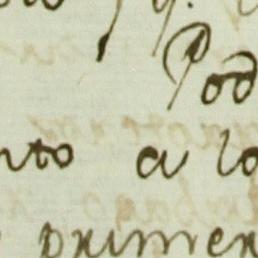 Pod
nto a lo
primer